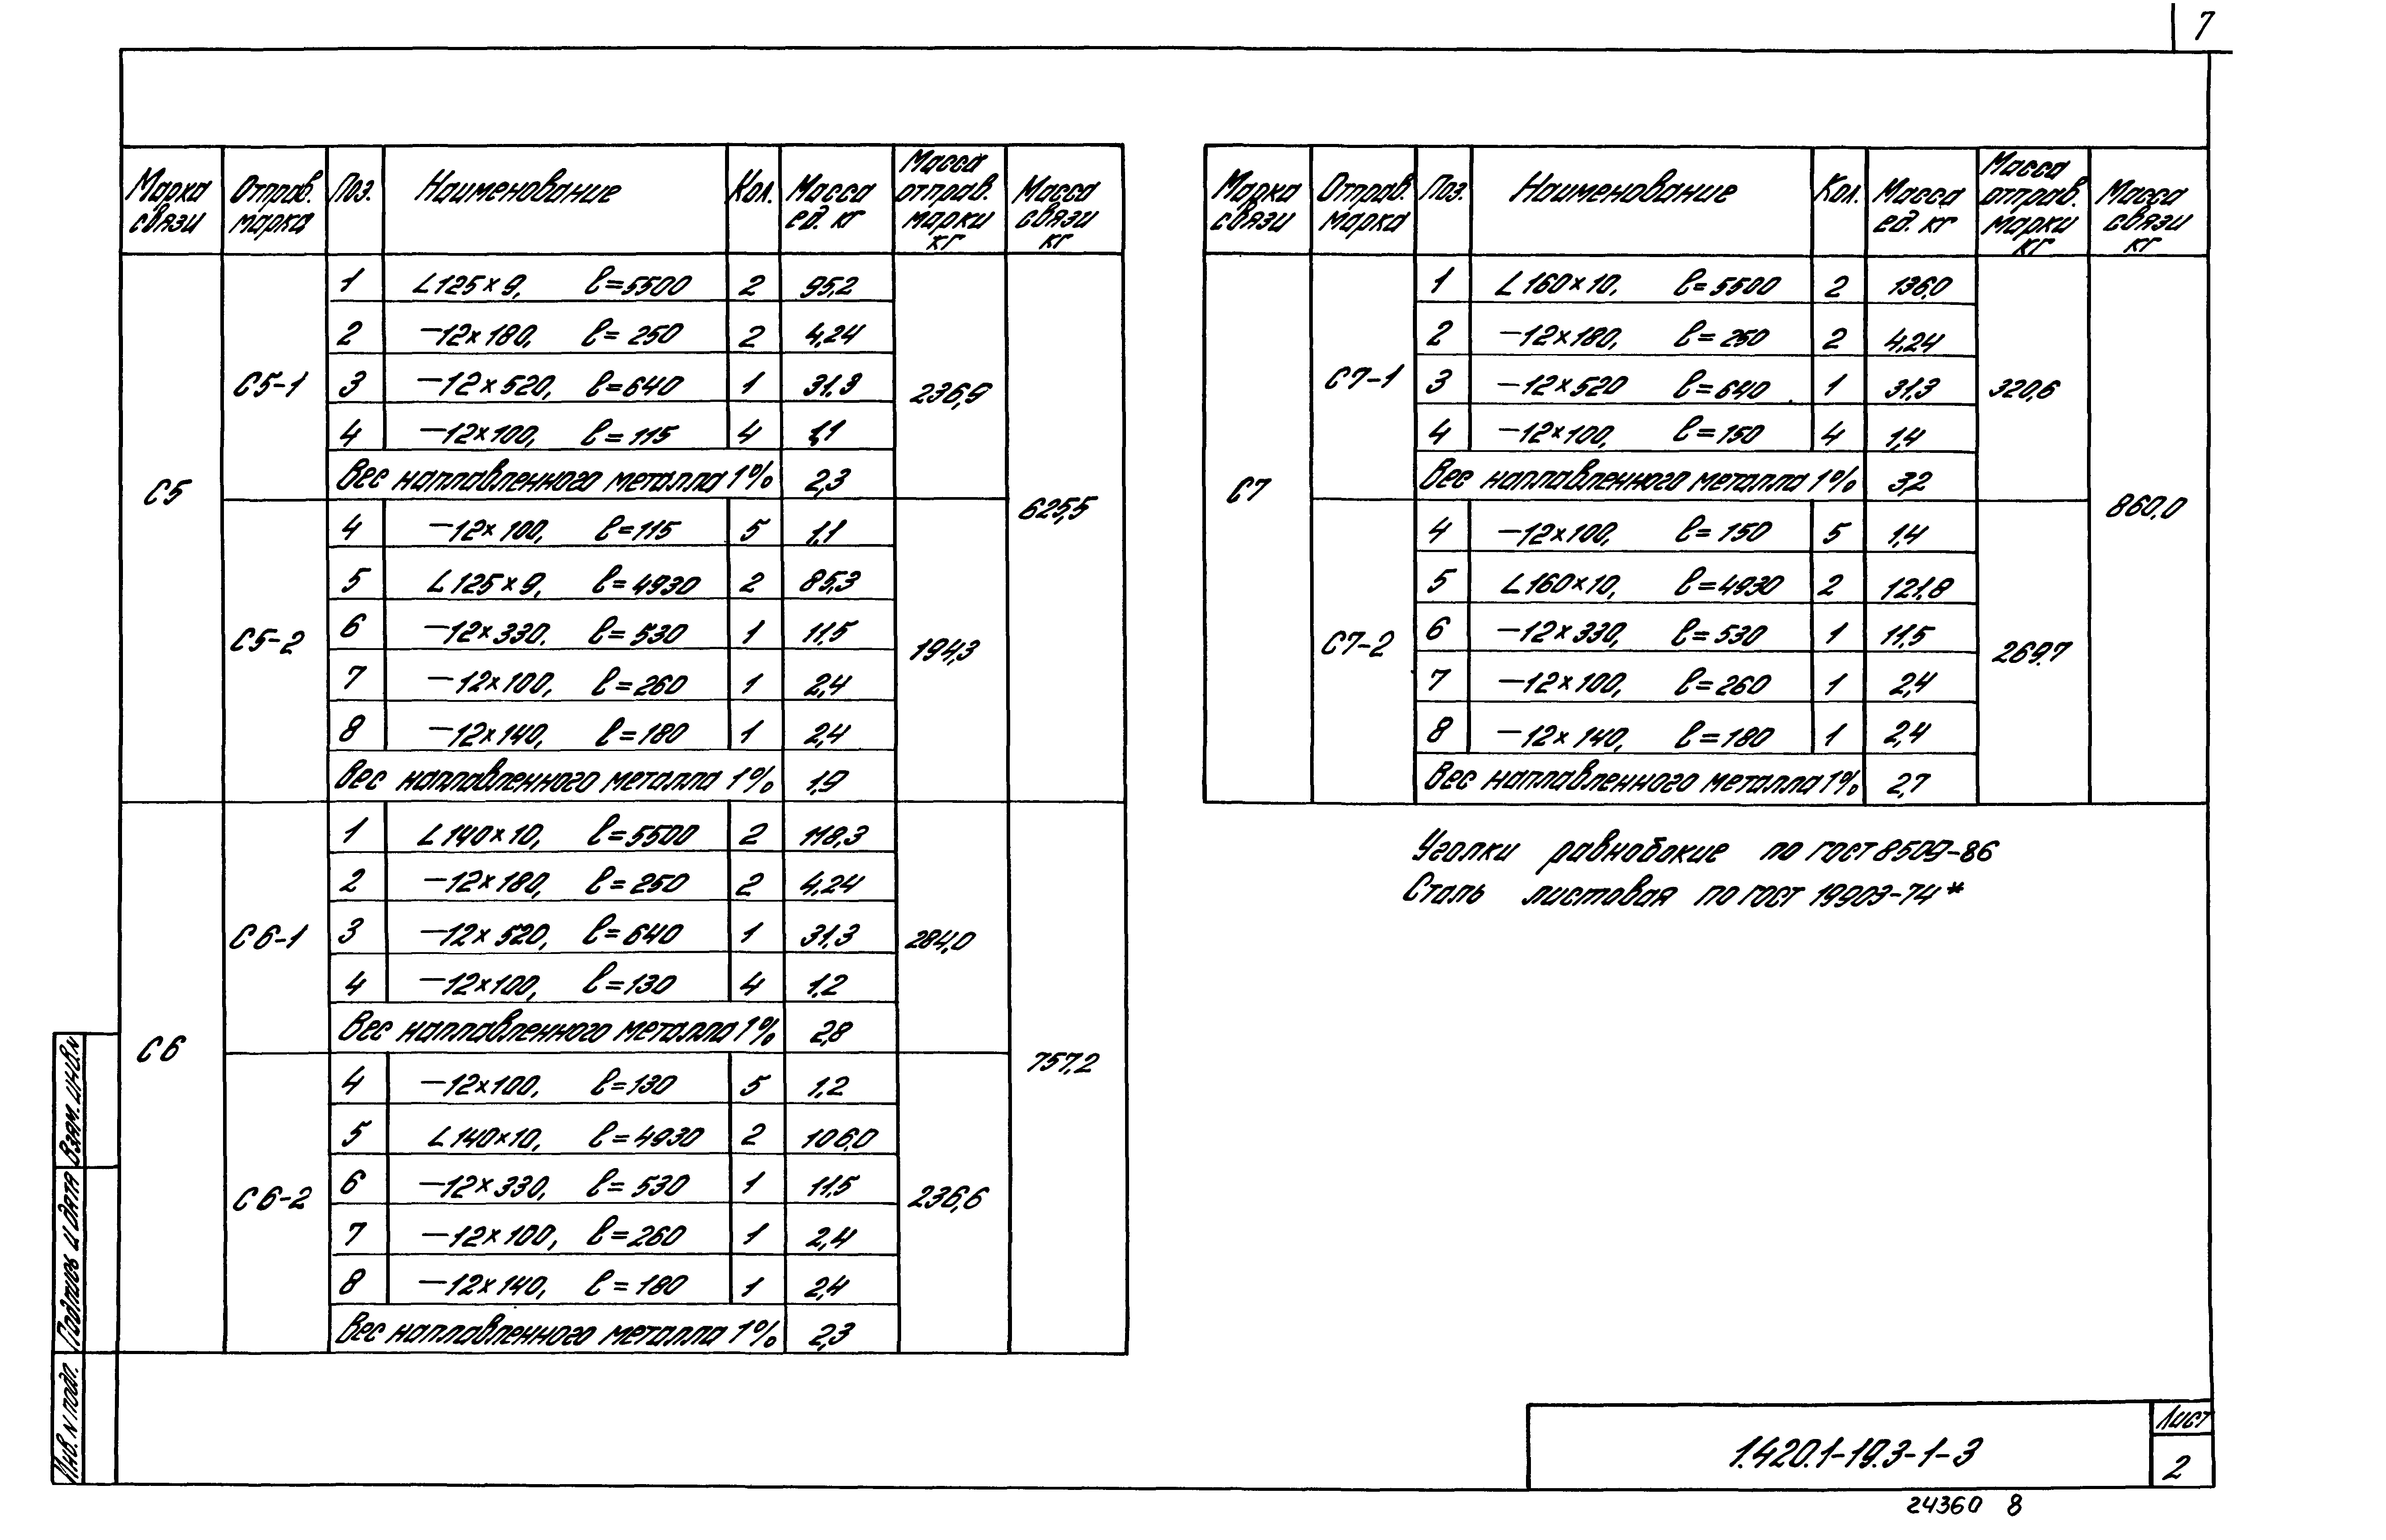 7
Марка связи | Отправ. марка | Поз. | Наименование | Кол. | Масса ед. кг | Масса отправ. марки кг | Масса связи кг
С5 | С5-1 | 1 | ∟125×9, ℓ=5500 | 2 | 95,2 | 236,9 | 625,5
2 | —12×180, ℓ=250 | 2 | 4,24
3 | —12×520, ℓ=640 | 1 | 31,3
4 | —12×100, ℓ=115 | 4 | 1,1
Вес наплавленного металла 1% | 2,3
С5-2 | 4 | —12×100, ℓ=115 | 5 | 1,1 | 194,3
5 | ∟125×9, ℓ=4930 | 2 | 85,3
6 | —12×330. ℓ=530 | 1 | 11,5
7 | —12×100, ℓ=260 | 1 | 2,4
8 | —12×140, ℓ=180 | 1 | 2,4
Вес наплавленного металла 1% | 1,9
С6 | С6-1 | 1 | ∟140×10, ℓ=5500 | 2 | 118,3 | 284,0 | 757,2
2 | —12×180, ℓ=250 | 2 | 4,24
3 | —12×520, ℓ=640 | 1 | 31,3
4 | —12×100, ℓ=130 | 4 | 1,2
Вес наплавленного металла 1% | 2,8
С6-2 | 4 | —12×100, ℓ=130 | 5 | 1,2 | 236,6
5 | ∟140×10, ℓ=4930 | 2 | 106,0
6 | —12×330, ℓ=530 | 1 | 11,5
7 | —12×100, ℓ=260 | 1 | 2,4
8 | —12×140, ℓ=180 | 1 | 2,4
Вес наплавленного металла 1% | 2,3
Марка связи | Отправ. марка | Поз. | Наименование | Кол. | Масса ед. кг | Масса отправ. марки кг | Масса связи кг
С7 | С7-1 | 1 | ∟160×10, ℓ=5500 | 2 | 136,0 | 320,6 | 860,0
2 | —12×180, ℓ=250 | 2 | 4,24
3 | —12×520 ℓ=640 | 1 | 31,3
4 | —12×100, ℓ=150 | 4 | 1,4
Вес наплавленного металла 1% | 3,2
С7-2 | 4 | —12×100, ℓ=150 | 5 | 1,4 | 269,7
5 | ∟160×10, ℓ=4930 | 2 | 121,8
6 | —12×330, ℓ=530 | 1 | 11,5
7 | —12×100, ℓ=260 | 1 | 2,4
8 | —12×140, ℓ=180 | 1 | 2,4
Вес наплавленного металла 1% | 2,7
Уголки равнобокие по ГОСТ 8509-86
Сталь листовая по ГОСТ 19903-74*
Инв. N подл.
Подпись и дата
Взам. инв. N
1.420.1-19.3-1-3
Лист
2
24360 8